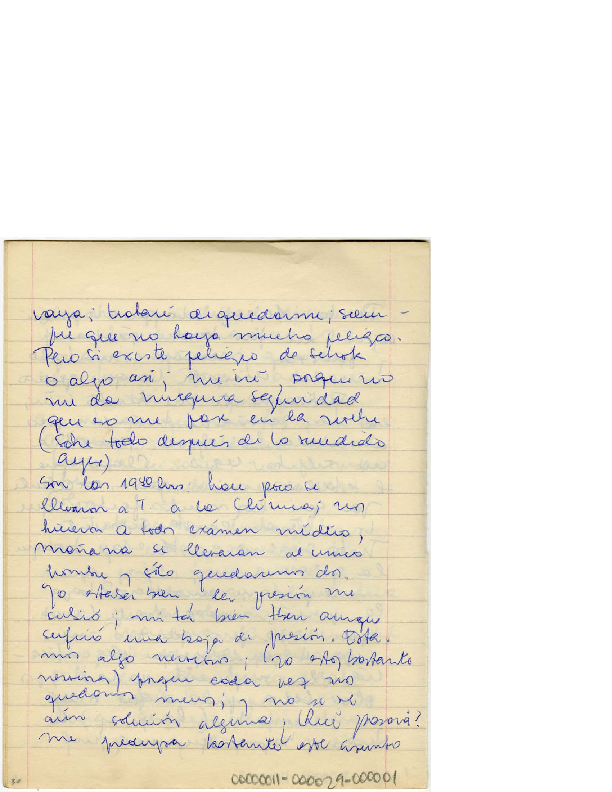 vaya; trataré de quedarme, siem-
pre que no haya mucho peligro.
Pero si existe peligro de schok
o algo así; me iré, porque no
me da ninguna seguridad
que eso me pase en la noche
(sobre todo después de lo sucedido
ayer)
son las 19 hrs hace poco se
llevaron a T a la Clínica; nos
hicieron a todos exámen médico,
mañana se llevaran al unico
hombre y sólo quedaremos dos.
Yo estaba bien la presión me
subió; mi tá bien
sufrió una baja de presión. Esta-
mos algo nerviosos; (yo estoy bastante
nerviosa) porque cada vez nos
quedamos menos; y no se ve
aún solución alguna. ¿Qué pasará?
me preocupa bastante este asunto
00000011-000029-000001